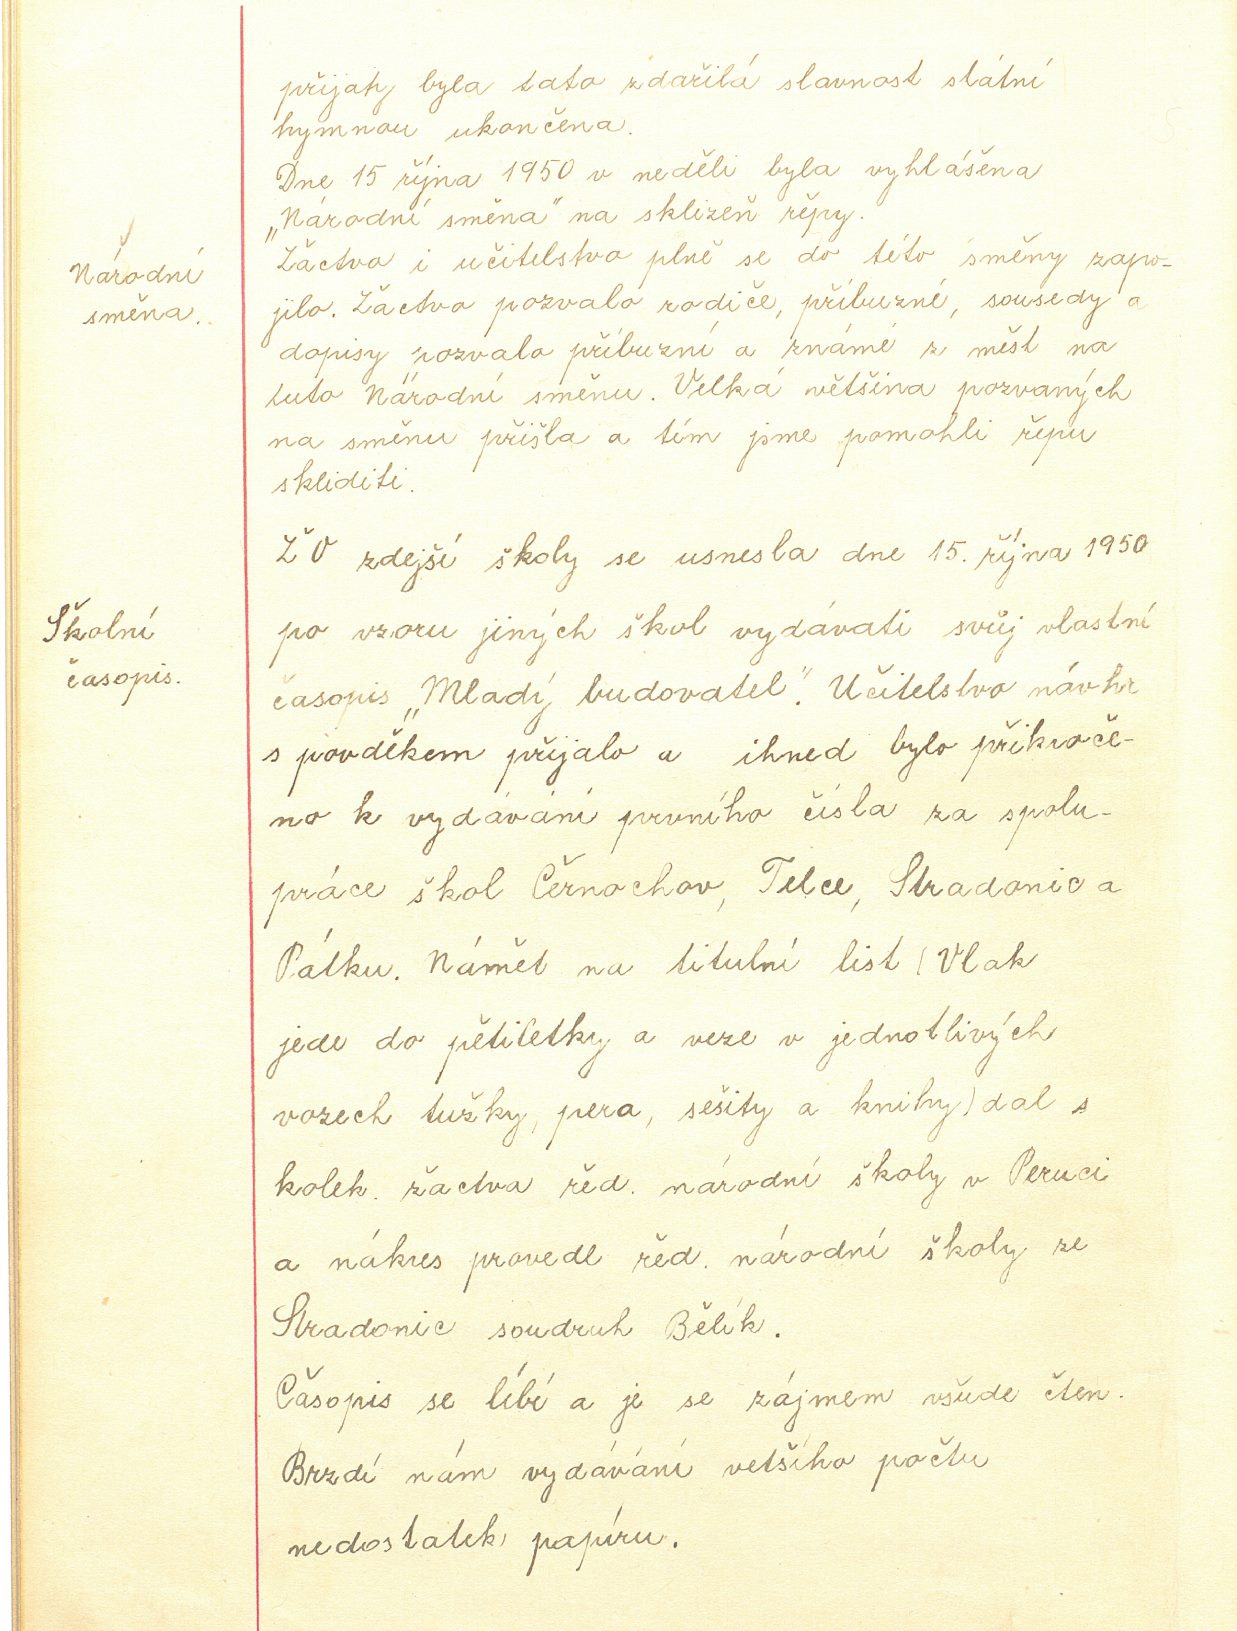 přijatý byla tato zdařilá slavnost státní
hymnou ukončena.
Dne 15 října 1950 v neděli byla vyhlášena
„Národní směna" na sklizeň řepy.
Národní
směna.
Žáctvo i učitelstvo plně se do této směny zapo-
jilo. Žáctvo pozvalo rodiče, příbuzné, sousedy a
dopisy pozvalo příbuzní a známé z měst na
tuto Národní směnu. Velká většina pozvaných
na směnu přišla a tím jsme pomohli řepu
skliditi.
ŽO zdejší školy se usnesla dne 15. října 1950
Školní
časopis.
po vzoru jiných škol vydávati svůj vlastní
časopis „Mladý budovatel". Učitelstvo návhr
s povděkem přijalo a ihned bylo přikroče-
no k vydávání prvního čísla za spolu-
práce škol Černochov, Telce, Stradonic a
Pátku. Námět na titulní list (Vlak
jede do pětiletky a veze v jednotlivých
vozech tužky, pera, sešity a knihy) dal s
kolek. žactva řed. národní školy v Peruci
a nákres provedl řed. národní školy ze
Stradonic soudruh Bělík.
Časopis se líbí a je se zájmem všude čten.
Brzdí nám vydávání vetšího počtu
nedostatek papíru.